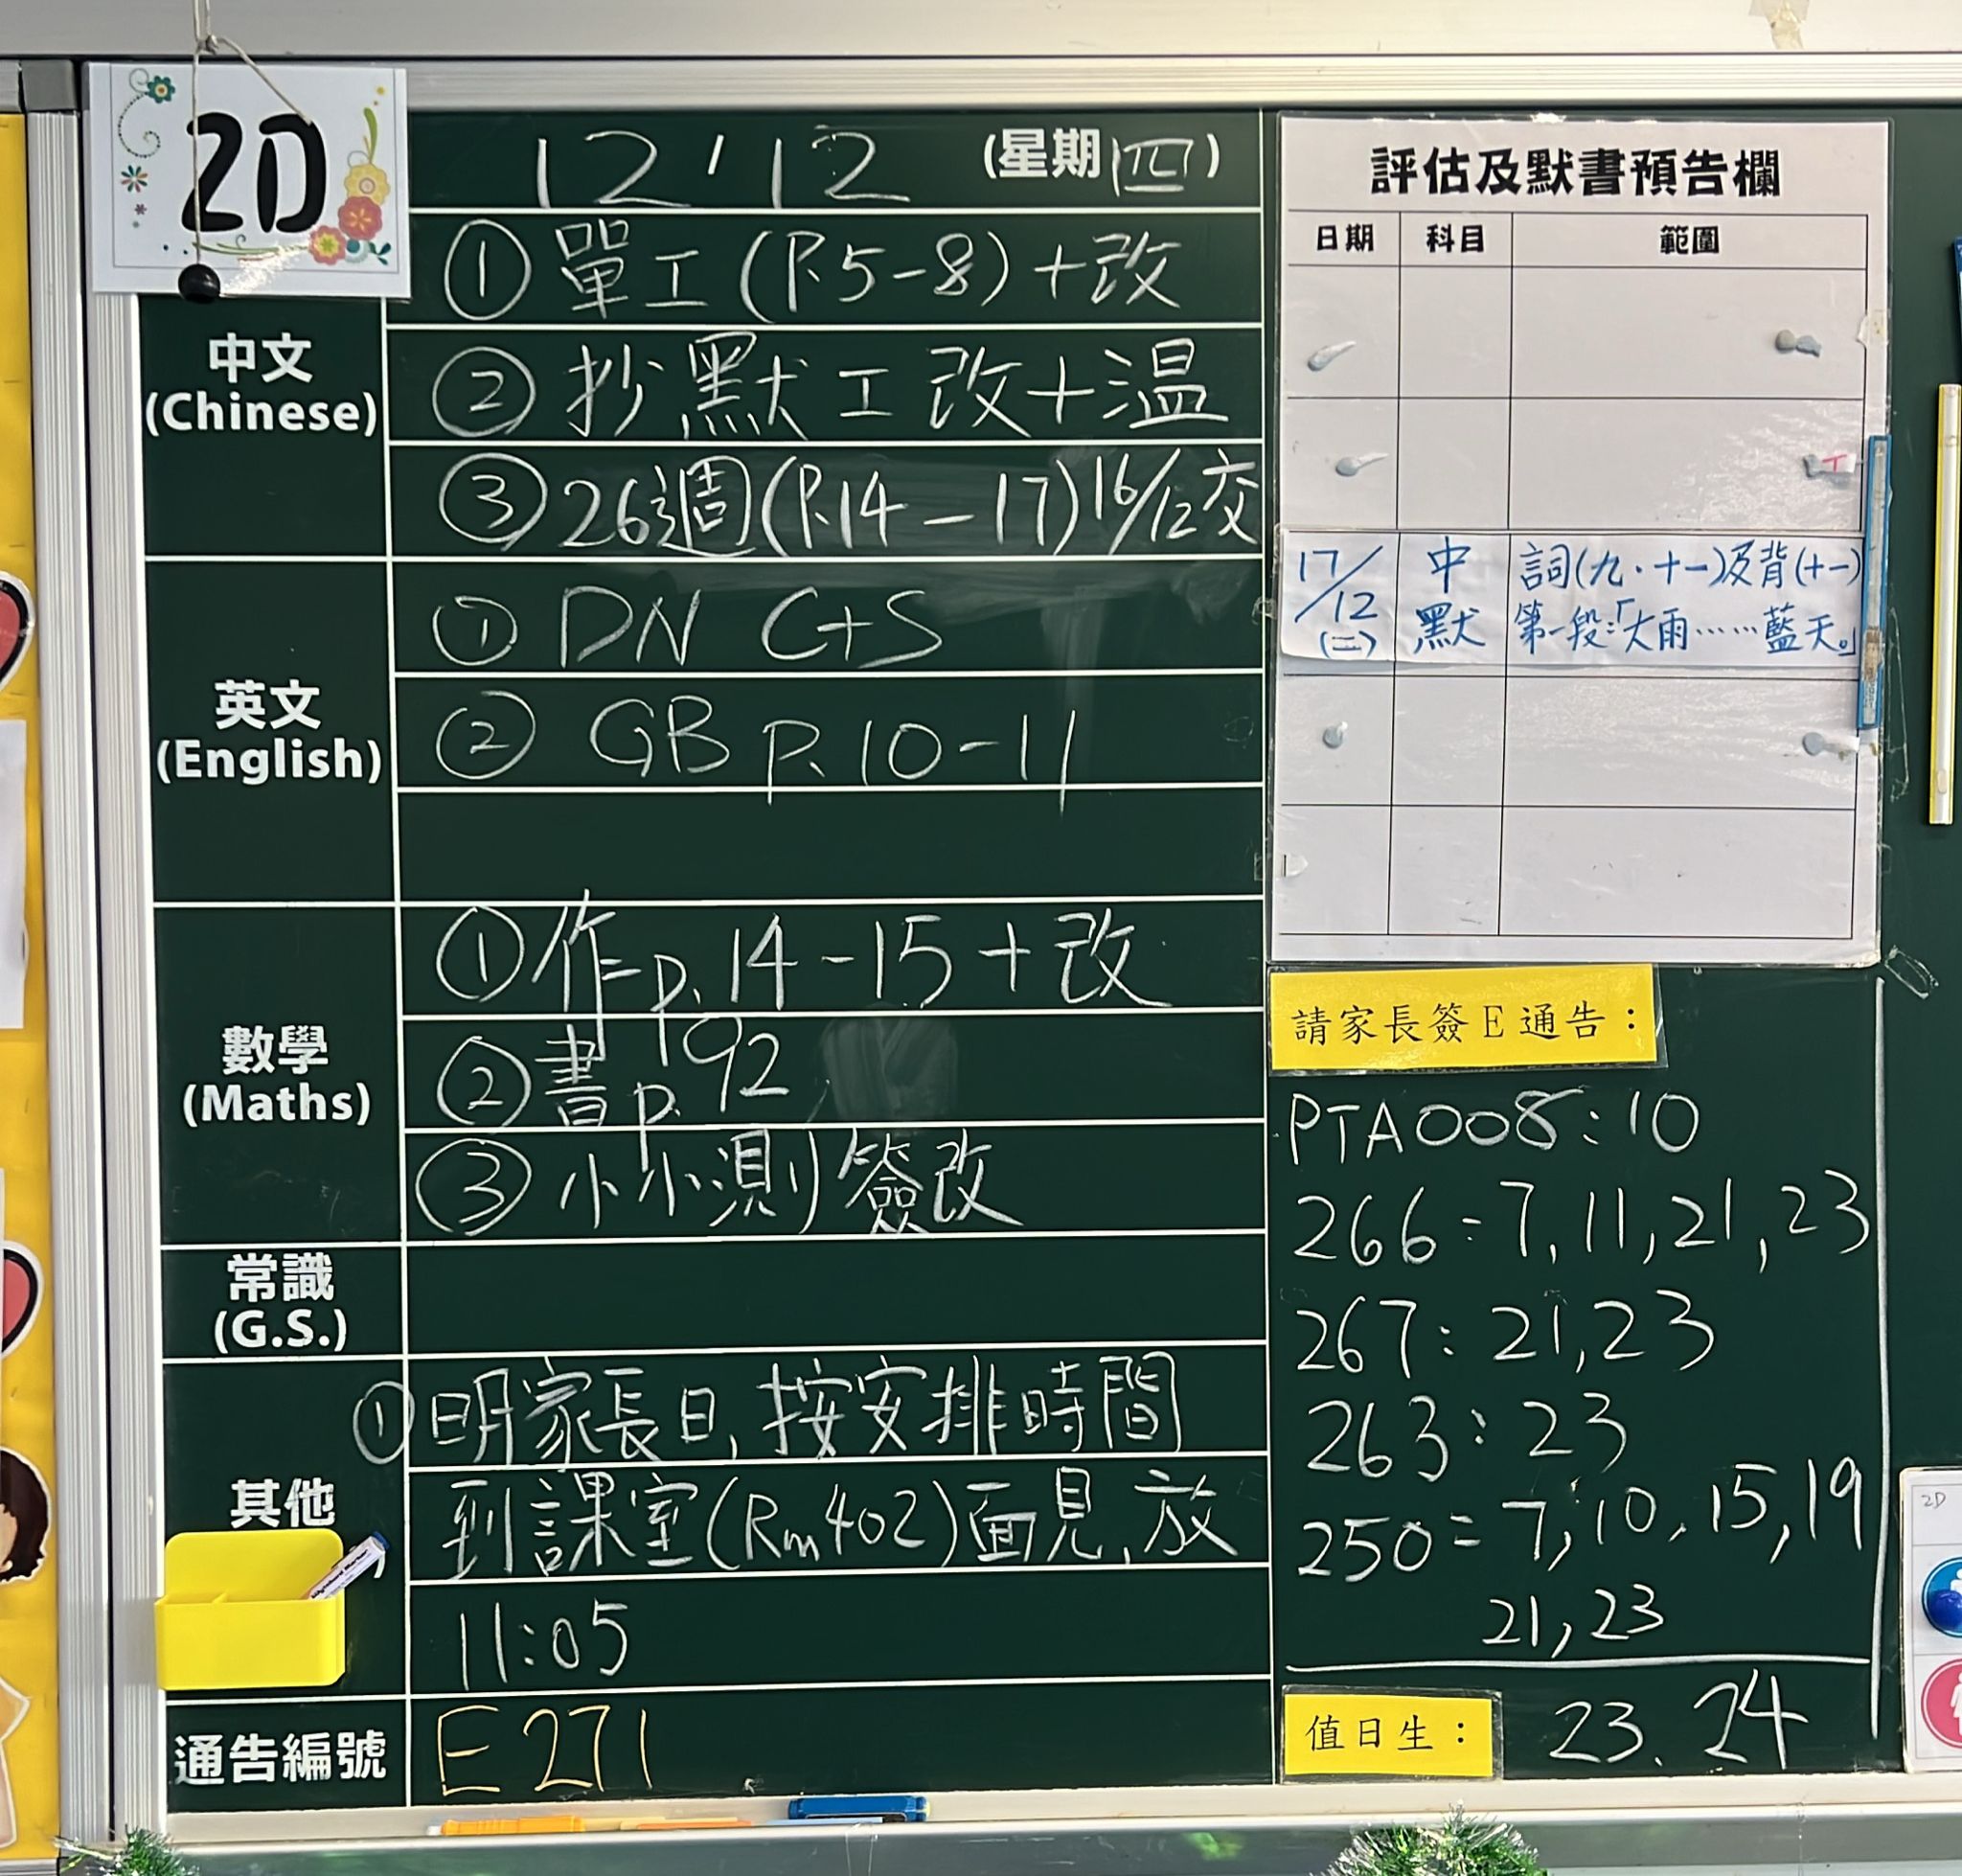 2D
12/12 (星期四)
中文
(Chinese)
① 單工 (P.5-8) + 改
② 抄默工改+溫
③ 26週(P.14-17) 16/12交
英文
(English)
① DN C+S
② GB p.10-11
數學
(Maths)
① 作 p.14-15 + 改
② 書 p.92
③ 小小測簽改
常識
(G.S.)
其他
① 明家長日,按安排時間
到課室(Rm402)面見,放
11:05
通告編號
E271
評估及默書預告欄
日期 科目 範圍
17/12(二) 中默 詞(九、十一)及背(十一)
第一段:「大雨……藍天。」
請家長簽E通告:
PTA008:10
266:7,11,21,23
267:21,23
263:23
250:7,10,15,19
21,23
值日生: 23、24
2D